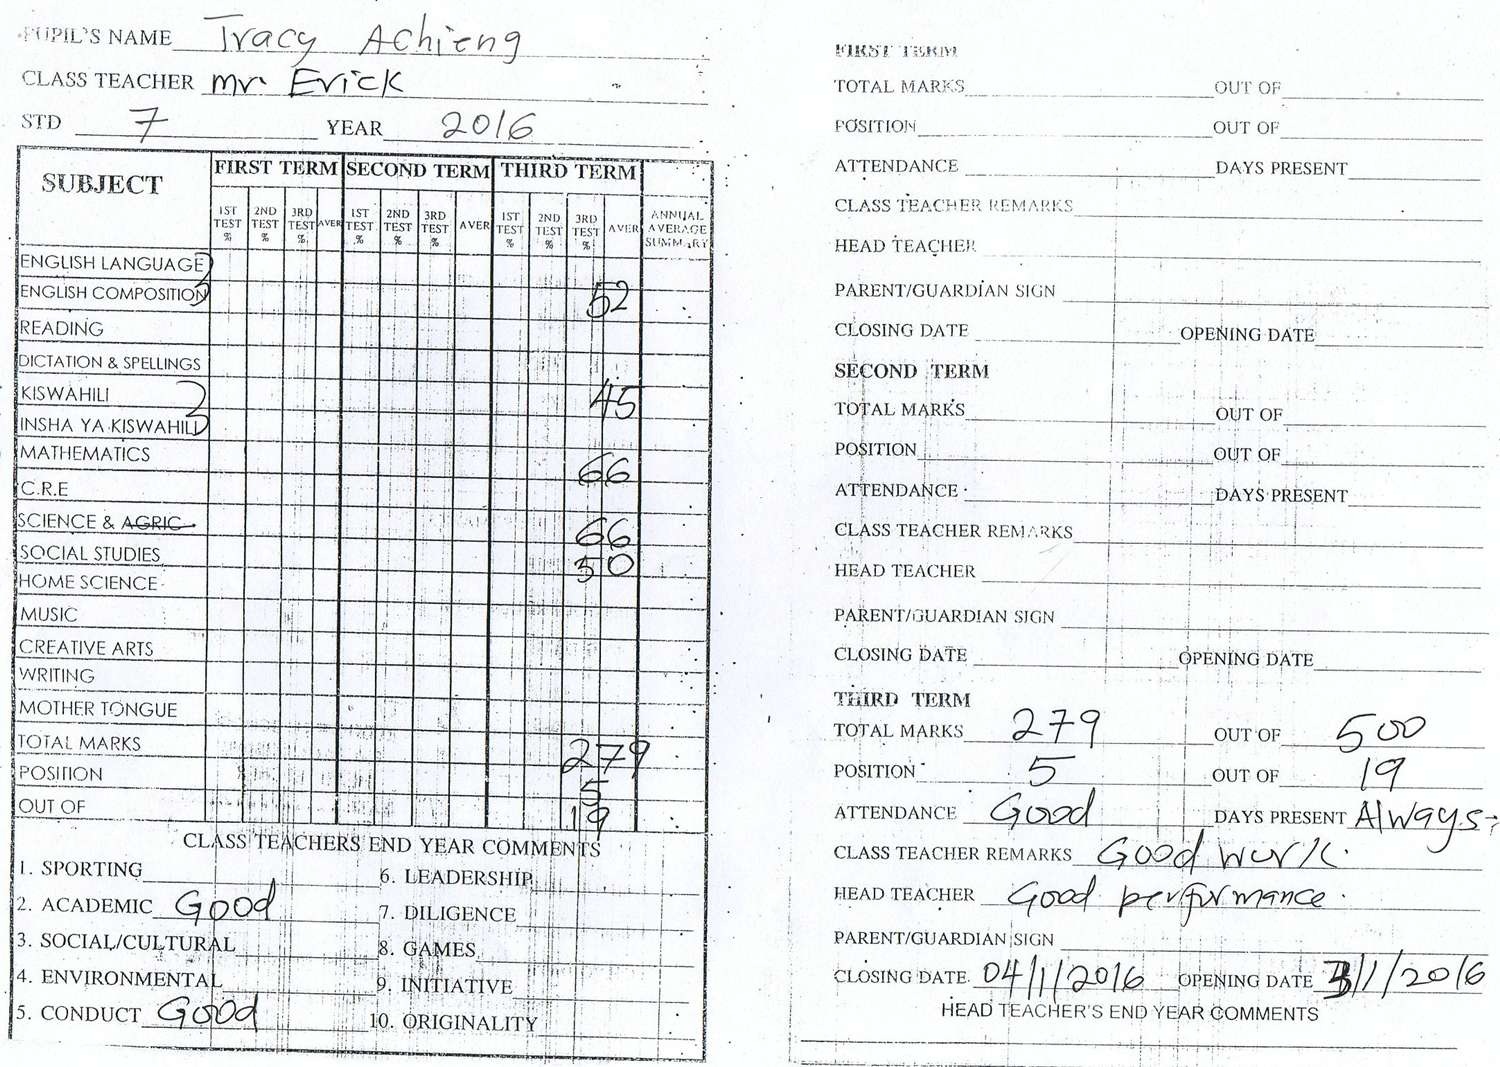 PUPIL'S NAME Tracy Achieng
CLASS TEACHER Mr. Erick
STD 7 YEAR 2016
SUBJECT FIRST TERM SECOND TERM THIRD TERM
1ST TEST % 2ND TEST % 3RD TEST % AVER 1ST TEST % 2ND TEST % 3RD TEST % AVER 1ST TEST % 2ND TEST % 3RD TEST % AVER ANNUAL AVERAGE SUMMARY
ENGLISH LANGUAGE
ENGLISH COMPOSITION 52
READING
DICTATION & SPELLINGS
KISWAHILI 45
INSHA YA KISWAHILI
MATHEMATICS 66
C.R.E
SCIENCE & AGRIC 66
SOCIAL STUDIES 50
HOME SCIENCE
MUSIC
CREATIVE ARTS
WRITING
MOTHER TONGUE
TOTAL MARKS 279
POSITION 5
OUT OF 19
CLASS TEACHERS END YEAR COMMENTS
1. SPORTING 6. LEADERSHIP
2. ACADEMIC Good 7. DILIGENCE
3. SOCIAL/CULTURAL 8. GAMES
4. ENVIRONMENTAL 9. INITIATIVE
5. CONDUCT Good 10. ORIGINALITY
FIRST TERM
TOTAL MARKS OUT OF
POSITION OUT OF
ATTENDANCE DAYS PRESENT
CLASS TEACHER REMARKS
HEAD TEACHER
PARENT/GUARDIAN SIGN
CLOSING DATE OPENING DATE
SECOND TERM
TOTAL MARKS OUT OF
POSITION OUT OF
ATTENDANCE DAYS PRESENT
CLASS TEACHER REMARKS
HEAD TEACHER
PARENT/GUARDIAN SIGN
CLOSING DATE OPENING DATE
THIRD TERM
TOTAL MARKS 279 OUT OF 500
POSITION 5 OUT OF 19
ATTENDANCE Good DAYS PRESENT Always
CLASS TEACHER REMARKS Good work.
HEAD TEACHER Good performance.
PARENT/GUARDIAN SIGN
CLOSING DATE 04/1/2016 OPENING DATE /1/2016
HEAD TEACHER'S END YEAR COMMENTS